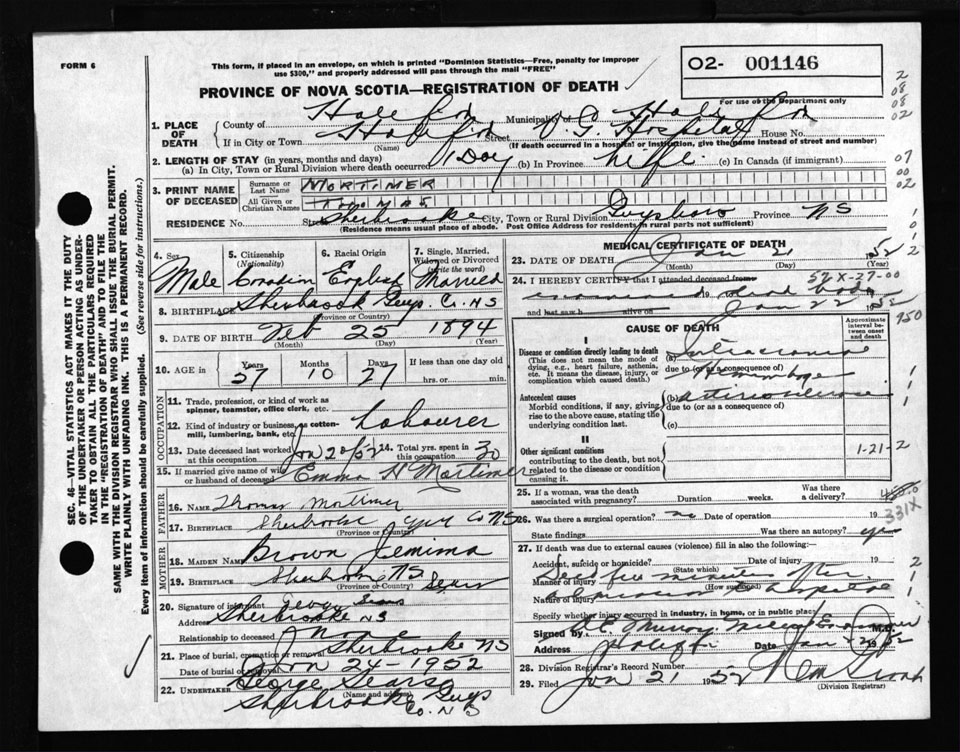 FORM 6
This form, if placed in an envelope, on which is printed "Dominion Statistics—Free, penalty for improper
use $300," and properly addressed will pass through the mail "FREE"
O2- 001146
For use of the Department only
PROVINCE OF NOVA SCOTIA—REGISTRATION OF DEATH
1. PLACE OF DEATH
County of Halifax Municipality of Halifax
If in City or Town Halifax Street V. G. Hospital House No.
(Name) (If death occurred in a hospital or institution, give the name instead of street and number)
2. LENGTH OF STAY (in years, months and days)
(a) In City, Town or Rural Division where death occurred 1 Day (b) In Province Life (c) In Canada (if immigrant)
3. PRINT NAME OF DECEASED
Surname or Last Name MORTIMER
All Given or Christian Names THOMAS
RESIDENCE No. Street Sherbrooke City, Town or Rural Division Guysboro Province NS
(Residence means usual place of abode. Post Office Address for rural parts not sufficient)
4. Sex Male
5. Citizenship (Nationality) Canadian
6. Racial Origin English
7. Single, Married, Widowed or Divorced (write the word) Married
8. BIRTHPLACE Sherbrook Guys. Co. NS
(Province or Country)
9. DATE OF BIRTH Feb 25 1894
(Month) (Day) (Year)
10. AGE in Years 57 Months 10 Days 27 If less than one day old
hrs. or min.
OCCUPATION
11. Trade, profession, or kind of work as
spinner, teamster, office clerk, etc.
12. Kind of industry or business, as cotton-
mill, lumbering, bank, etc. Labourer
13. Date deceased last worked at this occupation Jan 20/52 14. Total yrs. spent in this occupation 30
15. If married give name of wife or husband of deceased Emma H Mortimer
FATHER
16. NAME Thomas Mortimer
17. BIRTHPLACE Sherbrooke Guy Co NS
(Province or Country)
MOTHER
18. MAIDEN NAME Brown Jemima
19. BIRTHPLACE Sherbrooke NS
(Province or Country)
20. Signature of informant
Address Sherbrooke NS
Relationship to deceased
21. Place of burial, cremation or removal Sherbrooke NS
Date of burial or removal 24-1952
22. UNDERTAKER George Sears
(Name and address)
Sherbrooke Guys
Co. N S
MEDICAL CERTIFICATE OF DEATH
23. DATE OF DEATH Jan 21 1952
(Month) (Day) (Year)
24. I HEREBY CERTIFY that I attended deceased from 52-X-27-00
examined 19 dead body
and last saw h alive on Jan 22 1952
CAUSE OF DEATH
Approximate interval between onset and death
I
Disease or condition directly leading to death
(This does not mean the mode of
dying, e.g., heart failure, asthenia,
etc. It means the disease, injury, or
complication which caused death.)
(a) Intracranial
due to (or as a consequence of)
Hemorrhage
Antecedent causes
Morbid conditions, if any, giving
rise to the above cause, stating the
underlying condition last.
(b) arteriosclerosis
due to (or as a consequence of)
(c)
II
Other significant conditions
contributing to the death, but not
related to the disease or condition
causing it.
1-21-2
25. If a woman, was the death associated with pregnancy? Duration weeks. Was there a delivery?
331X
26. Was there a surgical operation? no Date of operation 19
State findings Was there an autopsy? yes
27. If death was due to external causes (violence) fill in also the following:—
Accident, suicide or homicide? Date of injury 19
(State which)
Manner of injury Died few minutes after
(How sustained)
Nature of injury admission to hospital
Specify whether injury occurred in industry, in home, or in public place
Signed by Murray Medical Examiner M.D.
Address Halifax Date Jan 22 1952
28. Division Registrar's Record Number
29. Filed Jan 21 1952
(Division Registrar)
SEC. 46—VITAL STATISTICS ACT MAKES IT THE DUTY
OF THE UNDERTAKER OR PERSON ACTING AS UNDER-
TAKER TO OBTAIN ALL THE PARTICULARS REQUIRED
IN THE "REGISTRATION OF DEATH" AND TO FILE THE
SAME WITH THE DIVISION REGISTRAR WHO SHALL ISSUE THE BURIAL PERMIT.
WRITE PLAINLY WITH UNFADING INK. THIS IS A PERMANENT RECORD.
Every item of information should be carefully supplied. (See reverse side for instructions.)
2
08
08
02
07
00
02
1
1
1
2
950
1
1
1
2
2
1
2